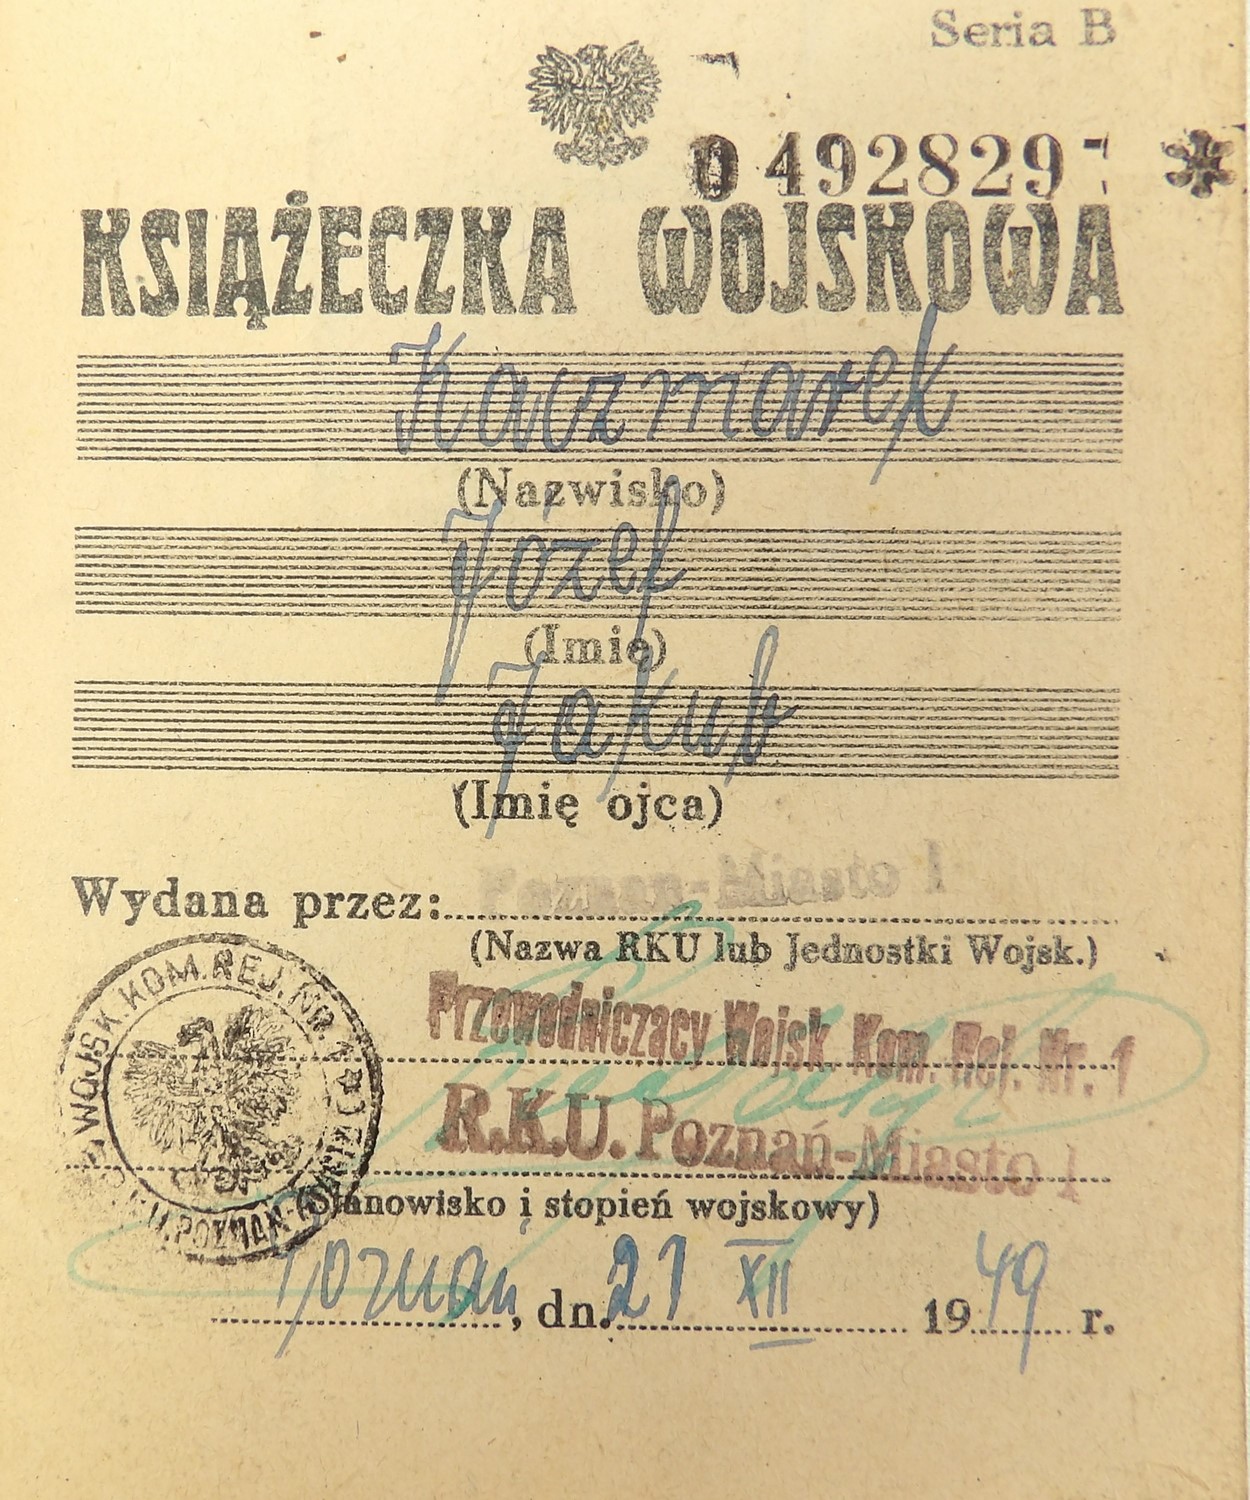 Seria B
0492829
KSIĄŻECZKA WOJSKOWA
Kaczmarek
(Nazwisko)
Józef
(Imię)
Jakub
(Imię ojca)
Wydana przez: Poznań-Miasto I
(Nazwa RKU lub Jednostki Wojsk.)
WOJSK.KOM.REJ. NR. 1
Przewodniczący Wojsk. Kom. Rej. Nr. 1
R.K.U. Poznań-Miasto I
(Stanowisko i stopień wojskowy)
Poznań, dn. 21 XII 1949 r.